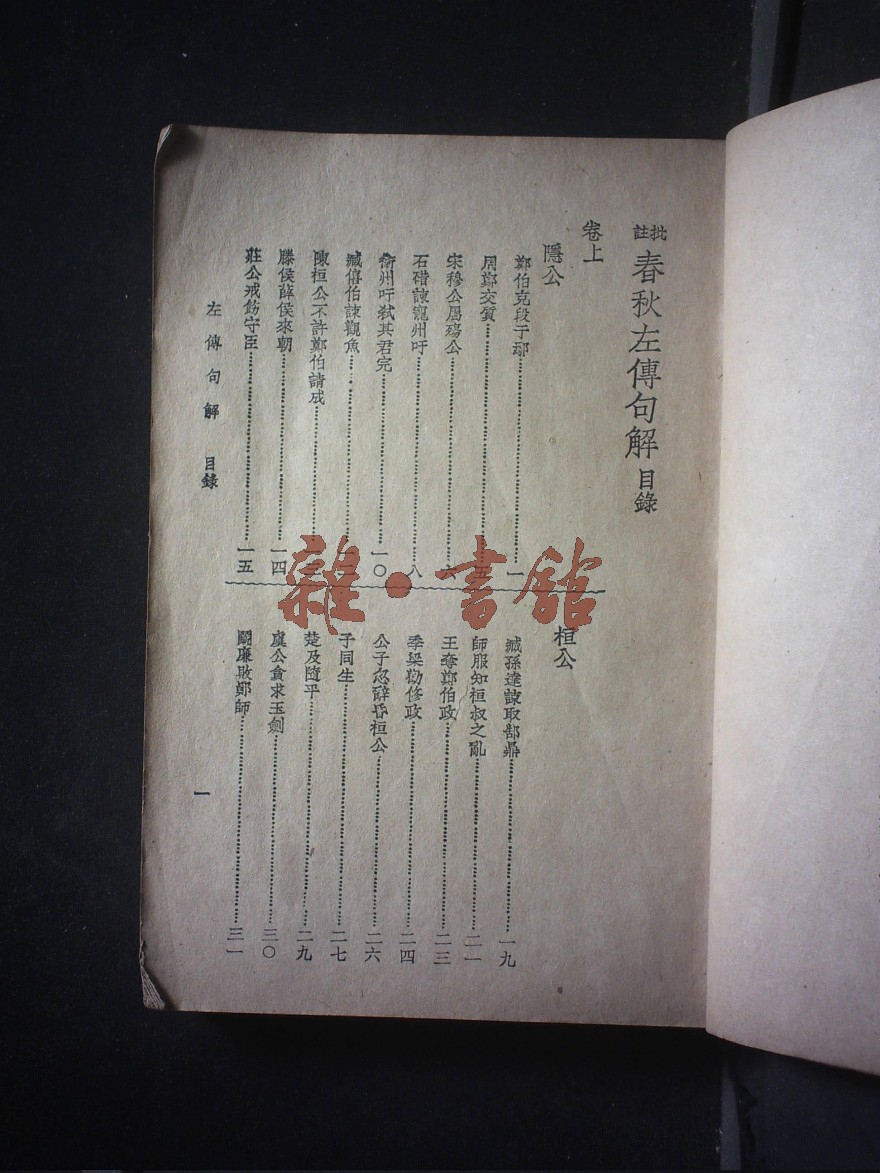 批註 春秋左傳句解 目錄
卷上
隱公
鄭伯克段于鄢……一
周鄭交質……五
宋穆公屬殤公……六
石碏諫寵州吁……八
衞州吁弒其君完……一〇
臧僖伯諫觀魚……
陳桓公不許鄭伯請成……
滕侯薛侯來朝……一四
莊公戒飭守臣……一五
桓公
臧孫達諫取郜鼎……一九
師服知桓叔之亂……二一
王奪鄭伯政……二三
季梁勸修政……二四
公子忽辭昏桓公……二六
子同生……二七
楚及隨平……二九
虞公貪求玉劍……三〇
鬭廉敗鄖師……三一
左傳句解 目錄
一
雜·書館